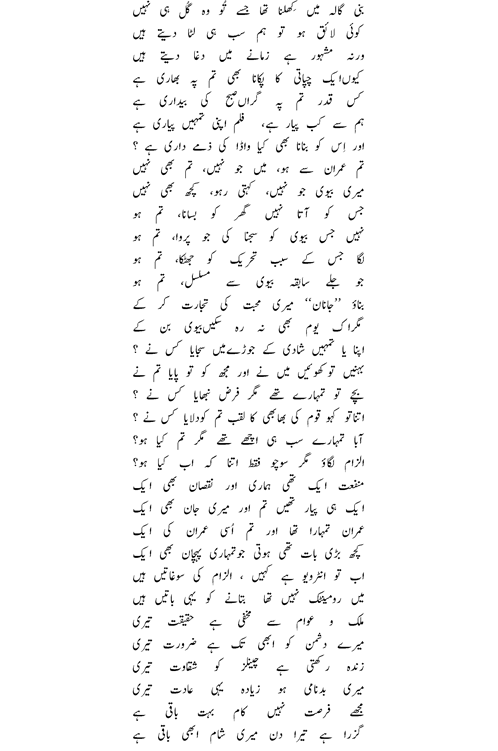 بنی گالہ میں کِھلنا تھا جسے تُو وہ گُل ہی نہیں
کوئی لائق ہو تو ہم سب ہی لٹا دیتے ہیں
ورنہ مشہور ہے زمانے میں دغا دیتے ہیں
کیوں ایک چپاتی کا پکانا بھی تم پہ بھاری ہے
کس قدر تم پہ گراں صبح کی بیداری ہے
ہم سے کب پیار ہے، فلم اپنی تمہیں پیاری ہے
اور اِس کو بنانا بھی کیا واڈا کی ذمے داری ہے ؟
تم عمران سے ہو، میں جو نہیں، تم بھی نہیں
میری بیوی جو نہیں، کہتی رہو، کچھ بھی نہیں
جس کو آتا نہیں گھر کو بسانا، تم ہو
نہیں جس بیوی کو سجنا کی جو پروا، تم ہو
لگا جس کے سبب تحریک کو جھٹکا، تم ہو
جو جلے سابقہ بیوی سے مسلسل، تم ہو
بناؤ ’’جانان‘‘ میری محبت کی تجارت کر کے
مگر اک یوم بھی نہ رہ سکیں بیوی بن کے
اپنا یا تمہیں شادی کے جوڑے میں سجایا کس نے ؟
بہنیں تو کھوئیں میں نے اور مجھ کو تو پایا تم نے
بچے تو تمہارے تھے مگر فرض نبھایا کس نے ؟
اتنا تو کہو قوم کی بھابھی کا لقب تم کو دلایا کس نے ؟
آبا تمہارے سب ہی اچھے تھے مگر تم کیا ہو؟
الزام لگاؤ مگر سوچو فقط اتنا کہ اب کیا ہو؟
منفعت ایک تھی ہماری اور نقصان بھی ایک
ایک ہی پیار تھیں تم اور میری جان بھی ایک
عمران تمہارا تھا اور تم اُسی عمران کی ایک
کچھ بڑی بات تھی ہوتی جو تمہاری پہچان بھی ایک
اب تو انٹرویو ہے کہیں ، الزام کی سوغاتیں ہیں
میں رومینٹک نہیں تھا بتانے کو یہی باتیں ہیں
ملک و عوام سے مخفی ہے حقیقت تیری
میرے دشمن کو ابھی تک ہے ضرورت تیری
زندہ رکھتی ہے چینلز کو شقاوت تیری
میری بدنامی ہو زیادہ یہی عادت تیری
مجھے فرصت نہیں کام بہت باقی ہے
گزرا ہے تیرا دن میری شام ابھی باقی ہے